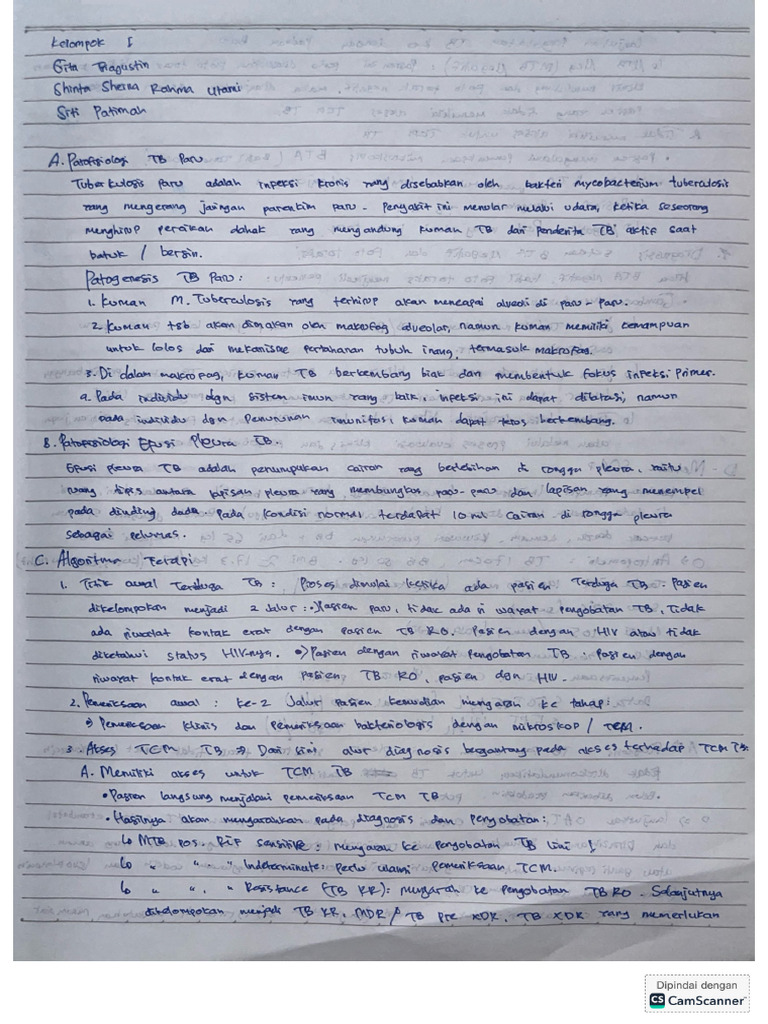 Kelompok I
Gita Tragustin
Shinta Sheina Rahma Utami
Siti Patimah
A. Patofisiologi TB Paru
Tuberkulosis paru adalah infeksi kronis yang disebabkan oleh bakteri mycobacterium tuberculosis
yang mengerang jaringan parenkim paru. Penyakit ini menular melalui udara, ketika seseorang
menghirup percikan dahak yang mengandung kuman TB dari penderita TB aktif saat
batuk / bersin.
Patogenesis TB Paru:
1. Kuman M. Tuberculosis yang terhirup akan mencapai alveoli di paru-paru.
2. Kuman tsb akan dimakan oleh makrofag alveolar, namun kuman memiliki kemampuan
untuk lolos dari mekanisme pertahanan tubuh inang, termasuk makrofag.
3. Di dalam makrofag, kuman TB berkembang biak dan membentuk fokus infeksi primer.
a. Pada individu dgn sistem imun yang baik, infeksi ini dapat dibatasi, namun
pada individu dgn penurunan imunitas, kuman dapat terus berkembang.
B. Patofisiologi Efusi Pleura TB.
Efusi pleura TB adalah penumpukan cairan yang berlebihan di rongga pleura, yaitu
ruang tipis antara lapisan pleura yang membungkus paru-paru dan lapisan yang menempel
pada dinding dada. Pada kondisi normal terdapat 10 ml cairan di rongga pleura
sebagai pelumas.
C. Algoritma Terapi
1. Titik awal Terduga TB: Proses dimulai ketika ada pasien Terduga TB. Pasien
dikelompokan menjadi 2 Jalur: Pasien paru, tidak ada riwayat pengobatan TB, Tidak
ada riwayat kontak erat dengan pasien TB RO, Pasien dengan HIV atau tidak
diketahui status HIV-nya. Pasien dengan riwayat pengobatan TB. Pasien dengan
riwayat kontak erat dengan pasien TB RO, pasien dgn HIV.
2. Pemeriksaan awal: ke-2 Jalur pasien kemudian mengarah ke tahap:
Pemeriksaan klinis dan pemeriksaan bakteriologis dengan mikroskop / TCM.
3. Akses TCM TB → Dari sini, alur diagnosis bergantung pada akses terhadap TCM TB.
A. Memiliki akses untuk TCM TB
• Pasien langsung menjalani pemeriksaan TCM TB
• Hasilnya akan mengarahkan pada diagnosis dan pengobatan:
↳ MTB pos. RIF sensitive: mengarah ke pengobatan TB lini 1
↳ " ". " Indeterminate: perlu ulangi pemeriksaan TCM.
↳ " ". " Resistance (TB RR): mengarah ke pengobatan TB RO. Selanjutnya
dikelompokan menjadi TB RR, MDR / TB Pre XDR, TB XDR yang memerlukan
Dipindai dengan
CS CamScanner